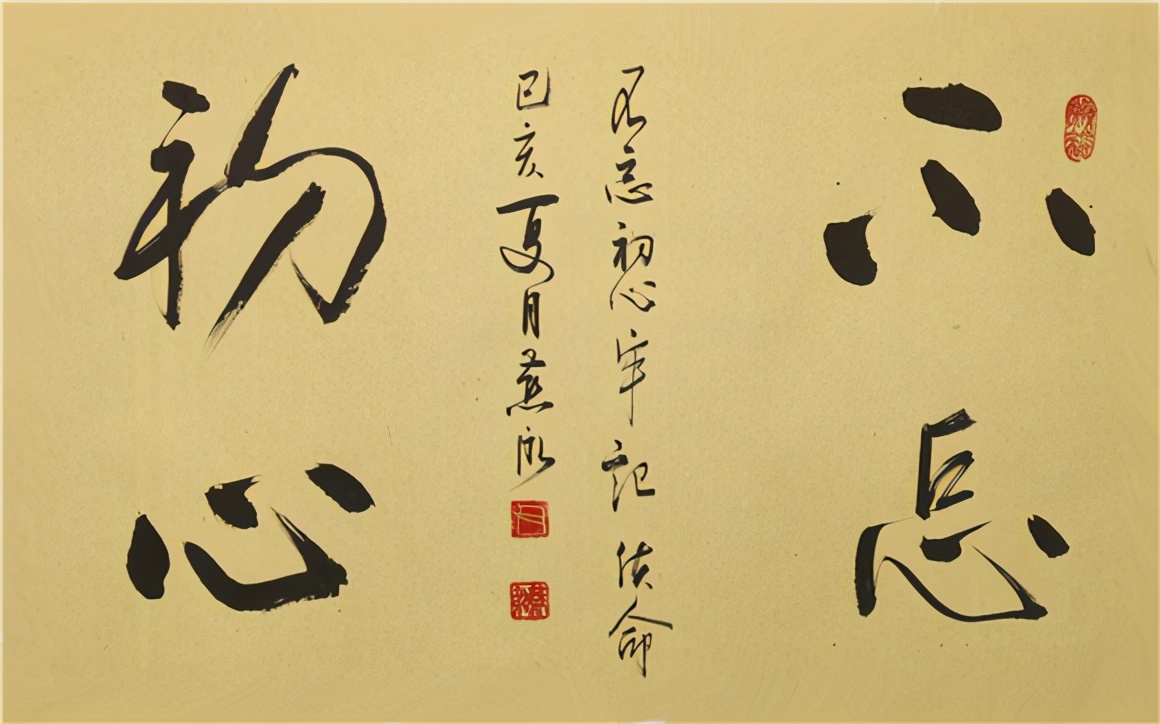 不忘
不忘初心牢记使命
己亥夏月
初心